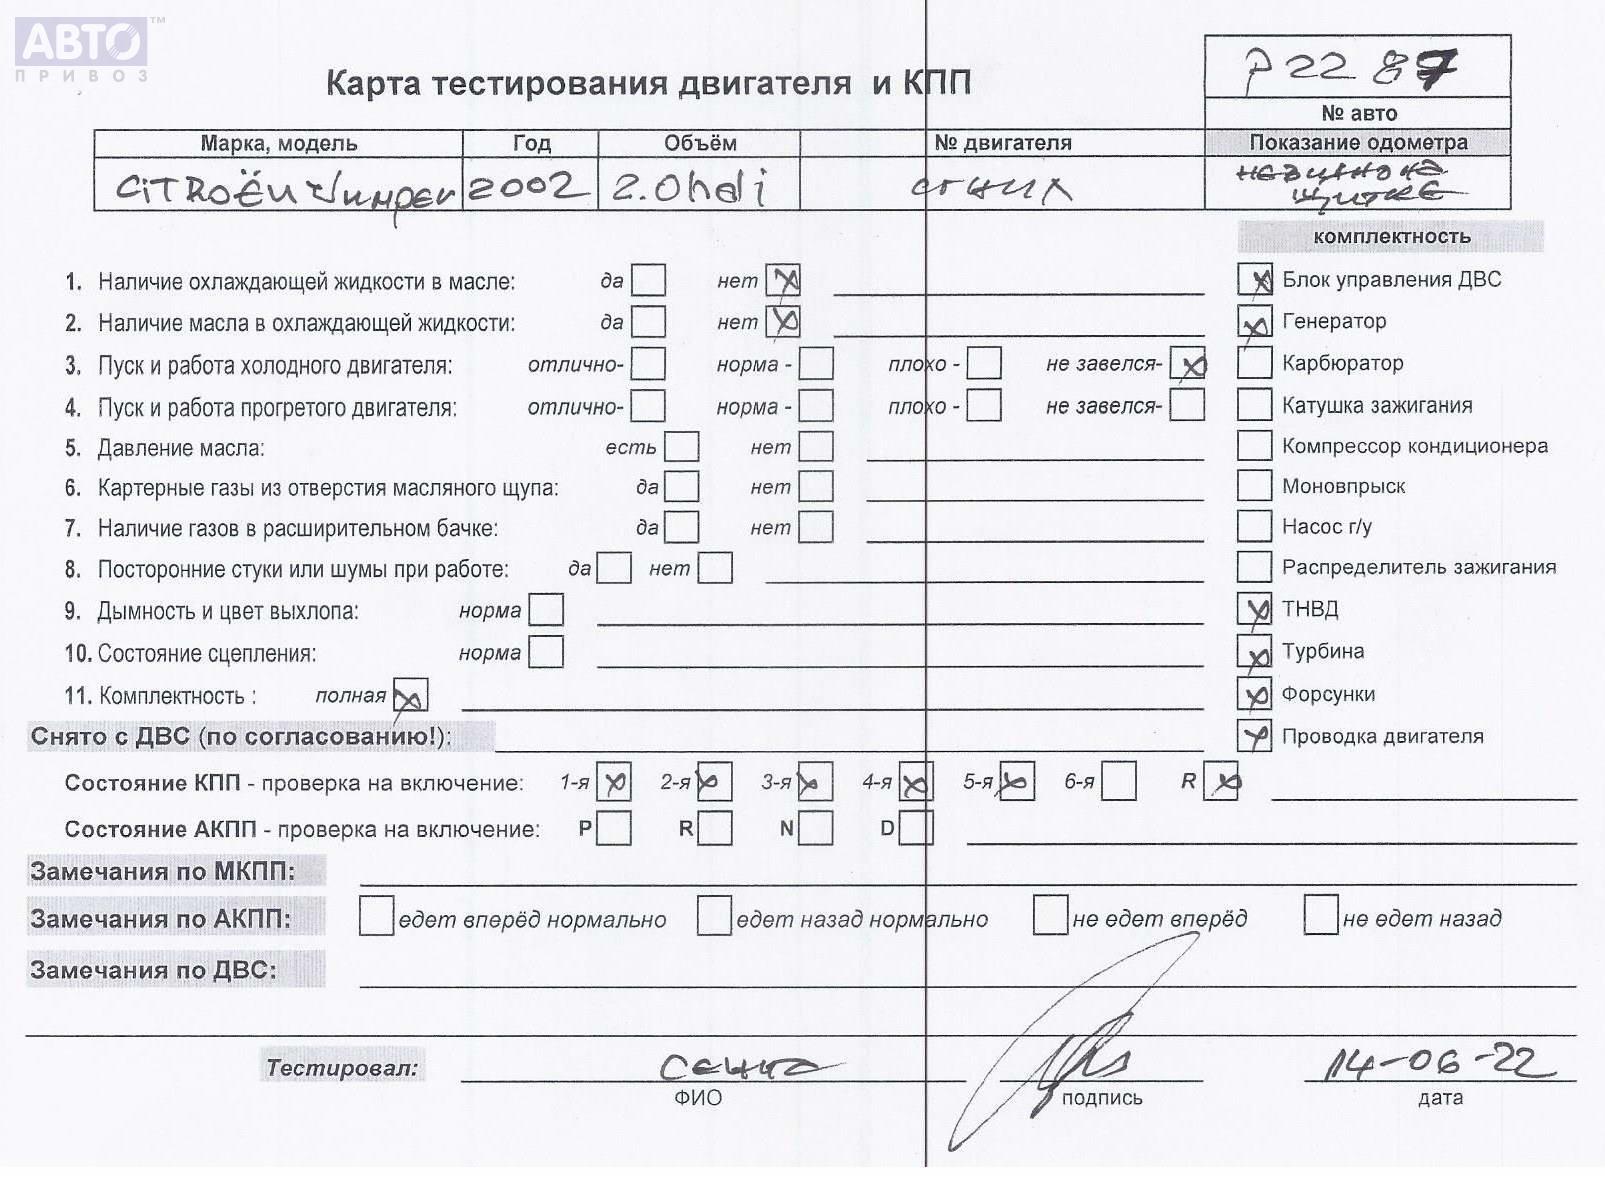 АВТО™
ПРИВОЗ
Р2287
Карта тестирования двигателя и КПП
№ авто
Марка, модель Год Объём № двигателя Показание одометра
CiTROËN Jumper 2002 2.0hdi сгнил
щитке
комплектность
1. Наличие охлаждающей жидкости в масле: да нет Блок управления ДВС
2. Наличие масла в охлаждающей жидкости: да нет Генератор
3. Пуск и работа холодного двигателя: отлично- норма - плохо - не завелся- Карбюратор
4. Пуск и работа прогретого двигателя: отлично- норма - плохо - не завелся- Катушка зажигания
5. Давление масла: есть нет Компрессор кондиционера
6. Картерные газы из отверстия масляного щупа: да нет Моновпрыск
7. Наличие газов в расширительном бачке: да нет Насос г/у
8. Посторонние стуки или шумы при работе: да нет Распределитель зажигания
9. Дымность и цвет выхлопа: норма ТНВД
10. Состояние сцепления: норма Турбина
11. Комплектность : полная Форсунки
Снято с ДВС (по согласованию!): Проводка двигателя
Состояние КПП - проверка на включение: 1-я 2-я 3-я 4-я 5-я 6-я R
Состояние АКПП - проверка на включение: P R N D
Замечания по МКПП:
Замечания по АКПП: едет вперёд нормально едет назад нормально не едет вперёд не едет назад
Замечания по ДВС:
Тестировал: 14-06-22
ФИО подпись дата